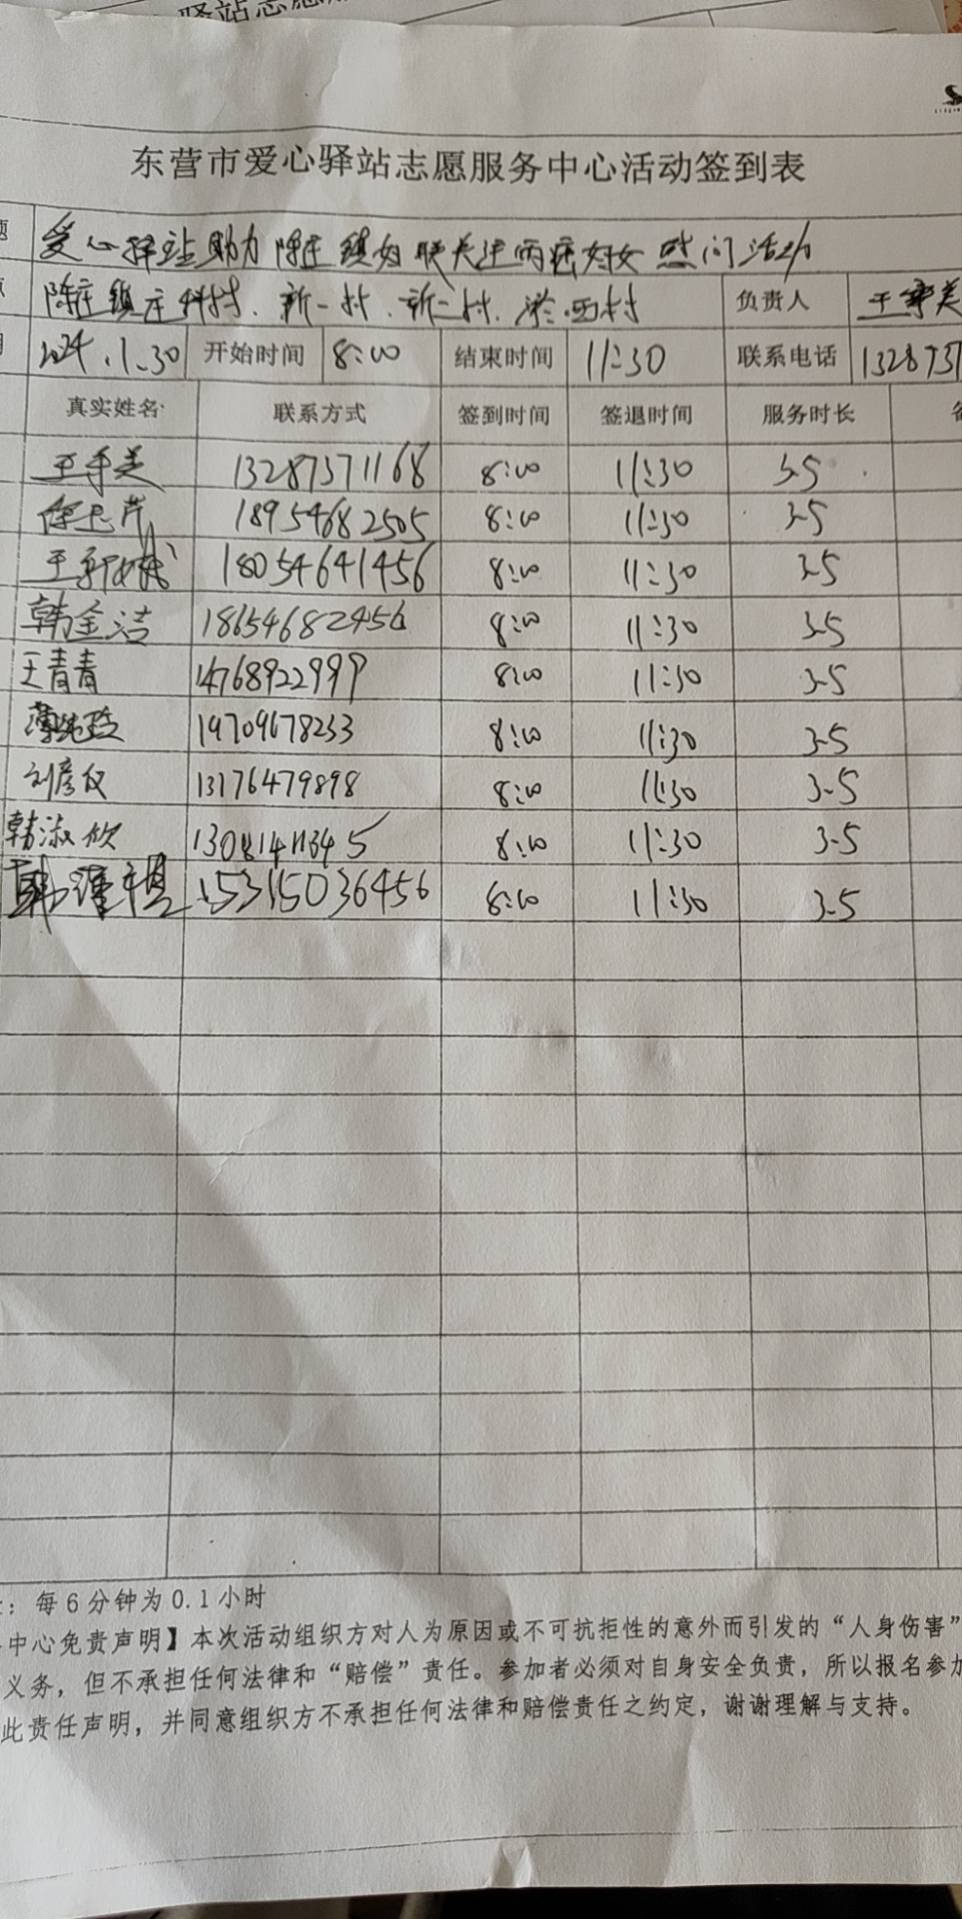 驿站志愿
东营市爱心驿站志愿服务中心活动签到表
爱心驿站助力陈庄镇妇联关注两癌妇女慰问活动
陈庄镇庄科村、新一村、新二村、 西村 负责人 王
2024.1.30 开始时间 8:00 结束时间 11:30 联系电话 1328737
真实姓名 联系方式 签到时间 签退时间 服务时长
王 美 13287371168 8:00 11:30 3.5
18954682505 8:00 11:30 3.5
王 18054641456 8:00 11:30 3.5
韩金洁 18654682456 8:00 11:30 3.5
王青青 14768922999 8:00 11:30 3.5
19709678233 8:00 11:30 3.5
刘彦仪 13176479898 8:00 11:30 3.5
韩淑欣 8:00 11:30 3.5
韩 15315036456 8:00 11:30 3.5
：每6分钟为0.1小时
中心免责声明】本次活动组织方对人为原因或不可抗拒性的意外而引发的“人身伤害”
义务，但不承担任何法律和“赔偿”责任。参加者必须对自身安全负责，所以报名参加
此责任声明，并同意组织方不承担任何法律和赔偿责任之约定，谢谢理解与支持。